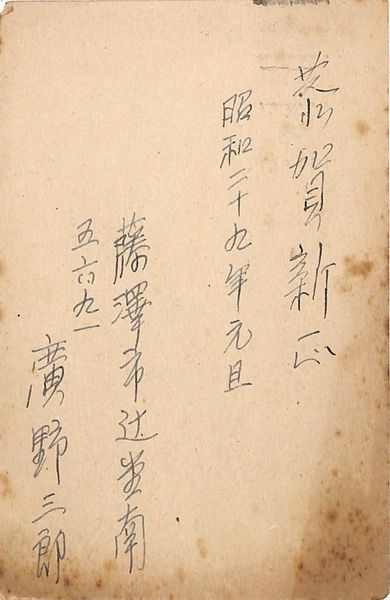 恭賀新正
昭和二十九年元旦
藤澤市辻堂南
五六九一
廣野三郎